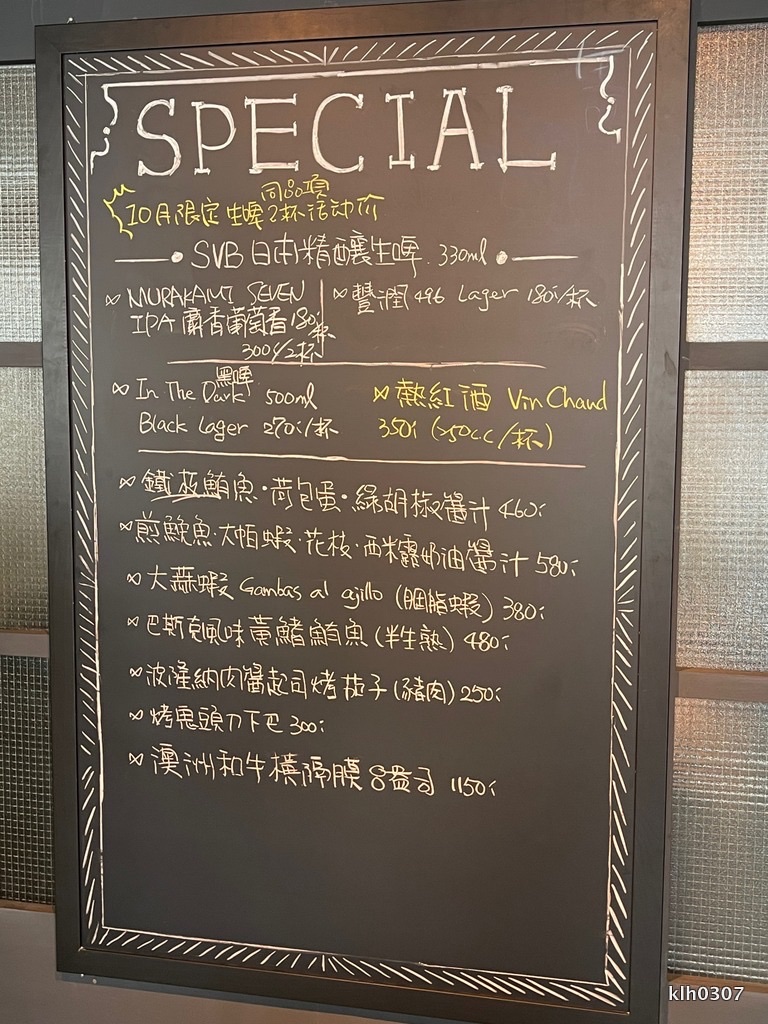 SPECIAL
同品項
10月限定生啤2杯活动价
SVB 日本精釀生啤. 330ml
MURAKAMI SEVEN
IPA 麝香葡萄香 180/杯
300/2杯
豐潤 496 Lager 180/杯
黑啤
In The Dark 500ml
Black Lager 270/杯
熱紅酒 Vin Chaud
350 (250cc/杯)
鐵板鮪魚·荷包蛋·綠胡椒醬汁 460
煎鮸魚·大帕蝦·花枝·西米露奶油醬汁 580
大蒜蝦 Gambas al ajillo (胭脂蝦) 380
巴斯克風味黃鰭鮪魚(半生熟) 480
波隆納肉醬起司烤茄子(豬肉) 250
烤鬼頭刀下巴 300
澳洲和牛橫隔膜 8盎司 1150
klh0307